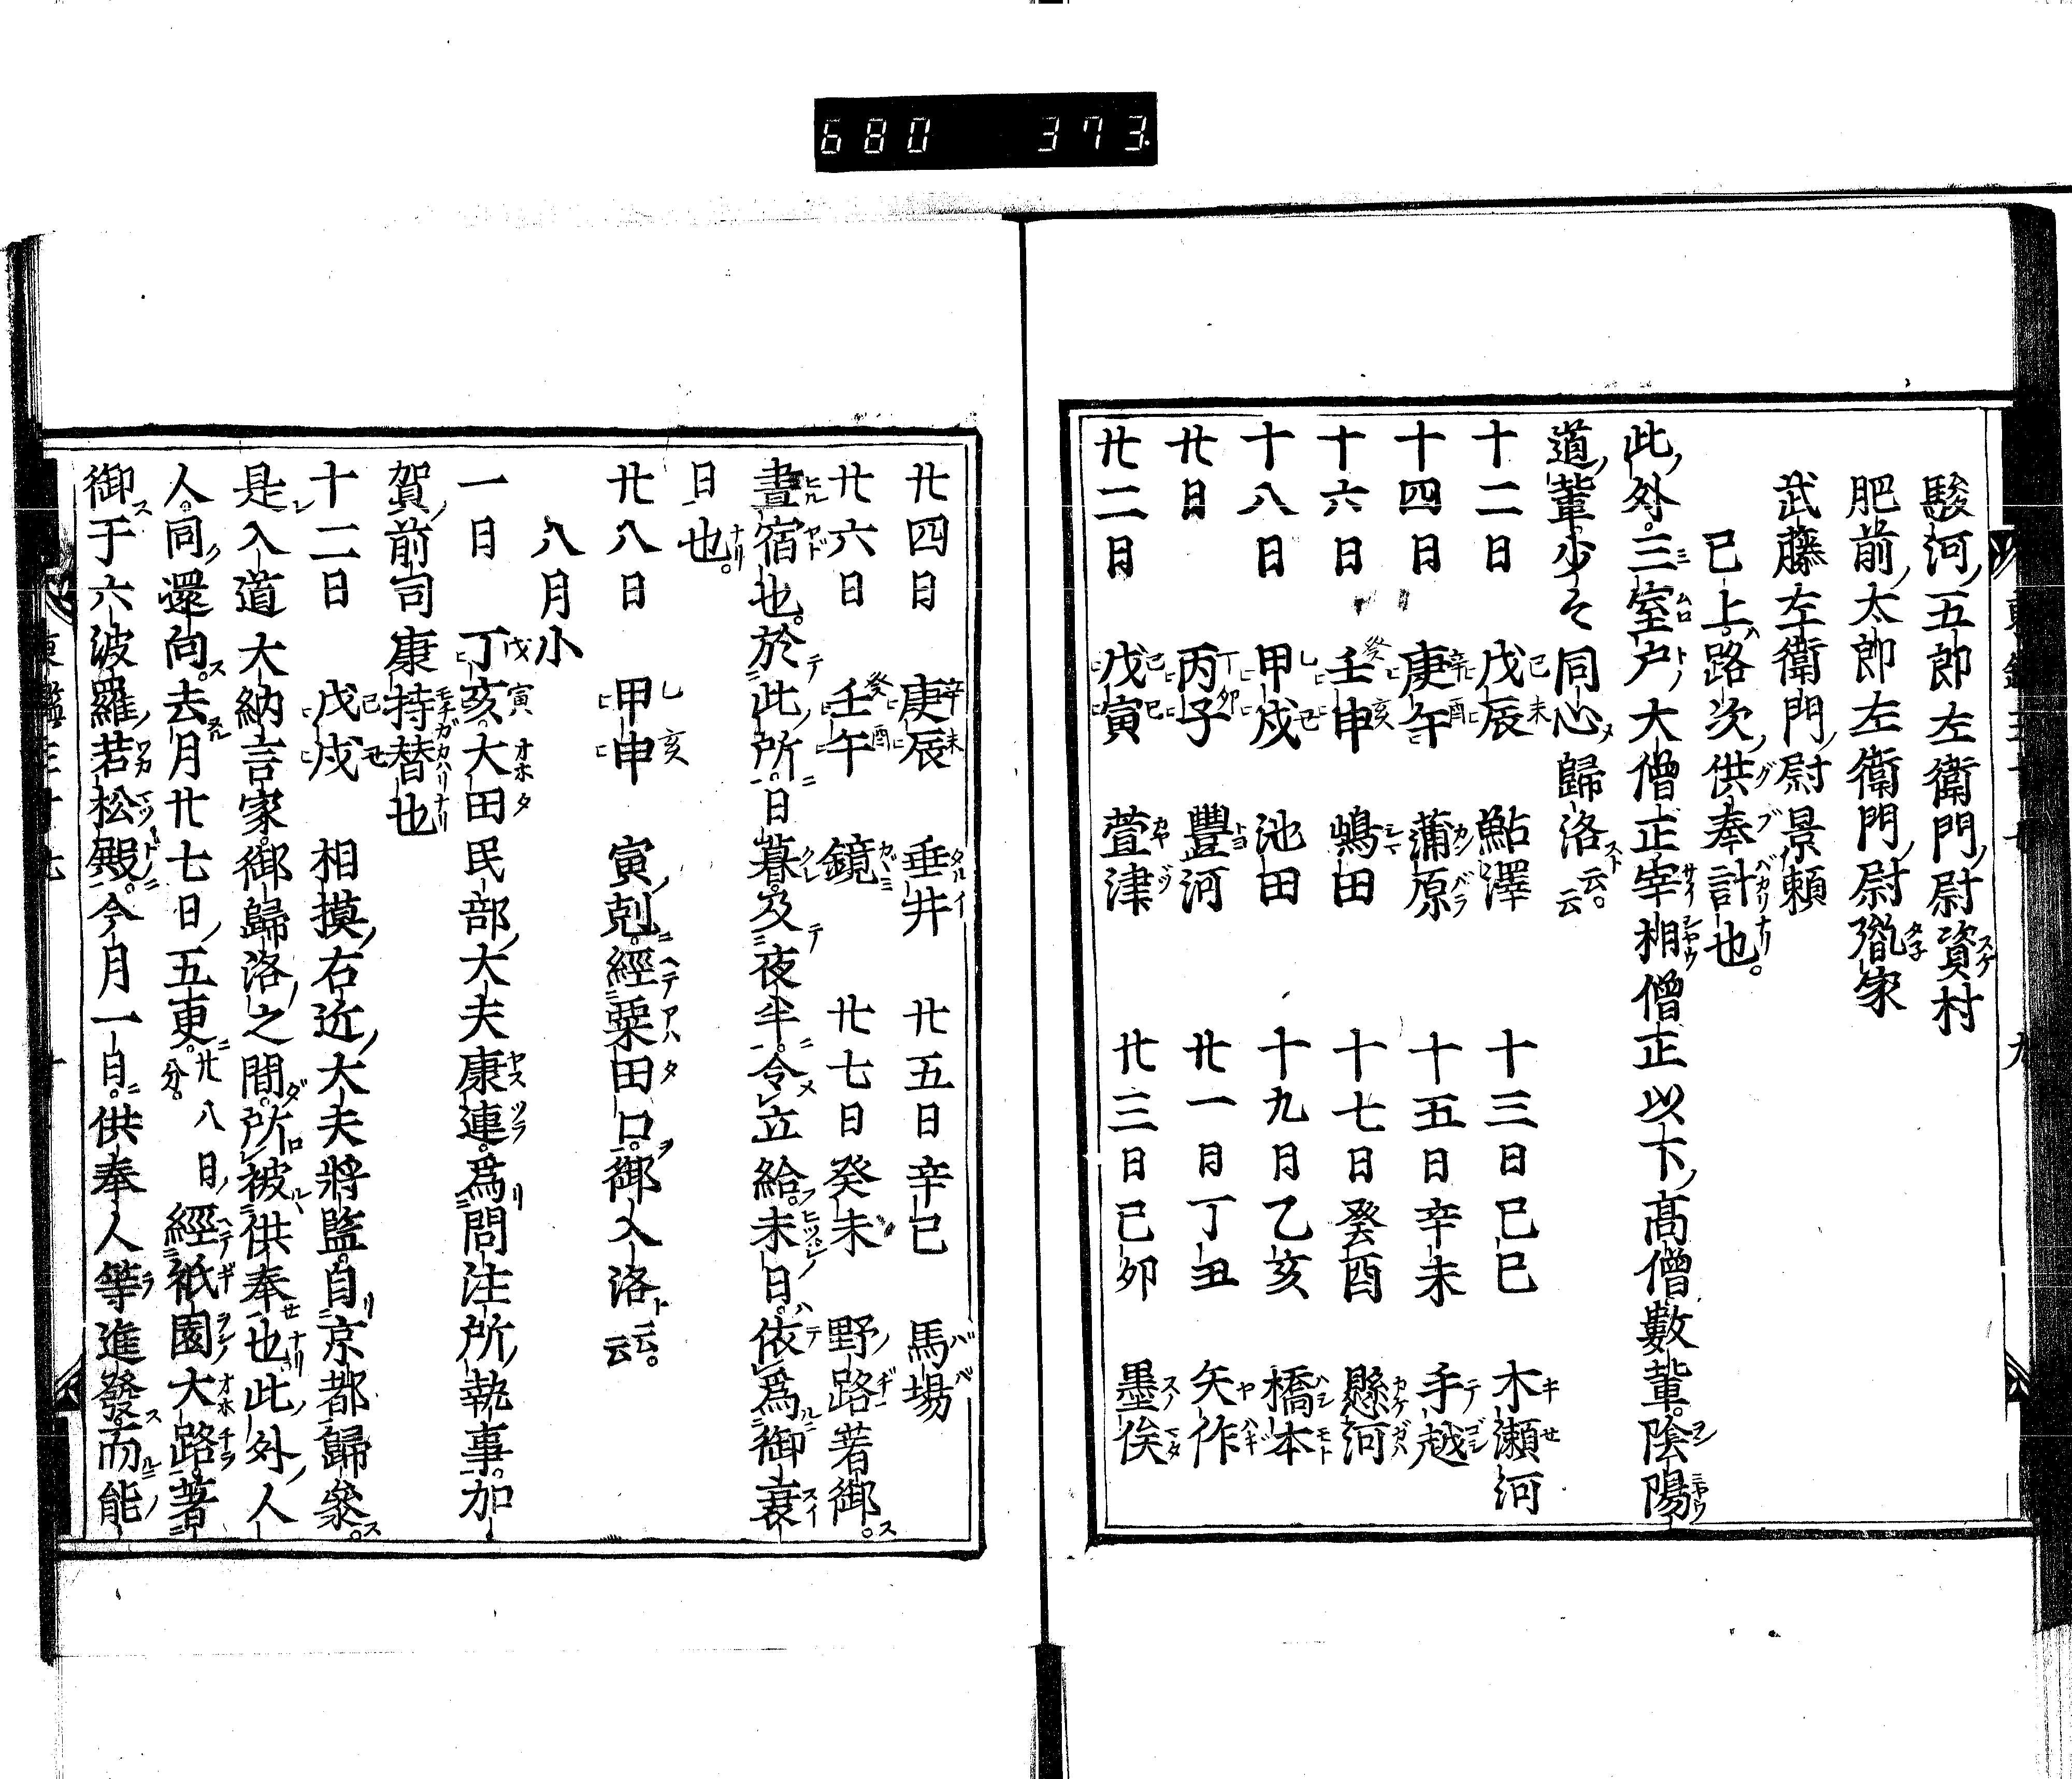 680 373.
駿河五郎左衛門尉資村
肥前太郎左衛門尉胤家
武藤左衛門尉景頼
已上路次供奉計也。
此外。三室戸大僧正宰相僧正以下高僧數輩。陰陽
道輩少々同心歸洛云云。
十二日 戊辰 鮎澤 十三日己巳 木瀬河
十四日 庚午 蒲原 十五日辛未 手越
十六日 壬申 嶋田 十七日癸酉 懸河
十八日 甲戌 池田 十九日乙亥 橋本
廿日 丙子 豐河 廿一日丁丑 矢作
廿二日 戊寅 萱津 廿三日己卯 墨俣
廿四日 庚辰 垂井 廿五日辛巳 馬場
廿六日 壬午 鏡 廿七日癸未 野路著御。
晝宿也。於此所。日暮。及夜半。令立給。未日。依爲御衰
日也。
廿八日 甲申 寅剋。經粟田口。御入洛云云。
八月小
一日 丁亥。大田民部大夫康連。爲問注所執事。加
賀前司康持替也
十二日 戊戌 相摸右近大夫將監。自京都歸參。
是入道大納言家。御歸洛之間。所被供奉也。此外人
人。同還向。去月廿七日五更。廿八日分。經祇園大路。著
御于六波羅若松殿。今月一日。供奉人等進發。而能